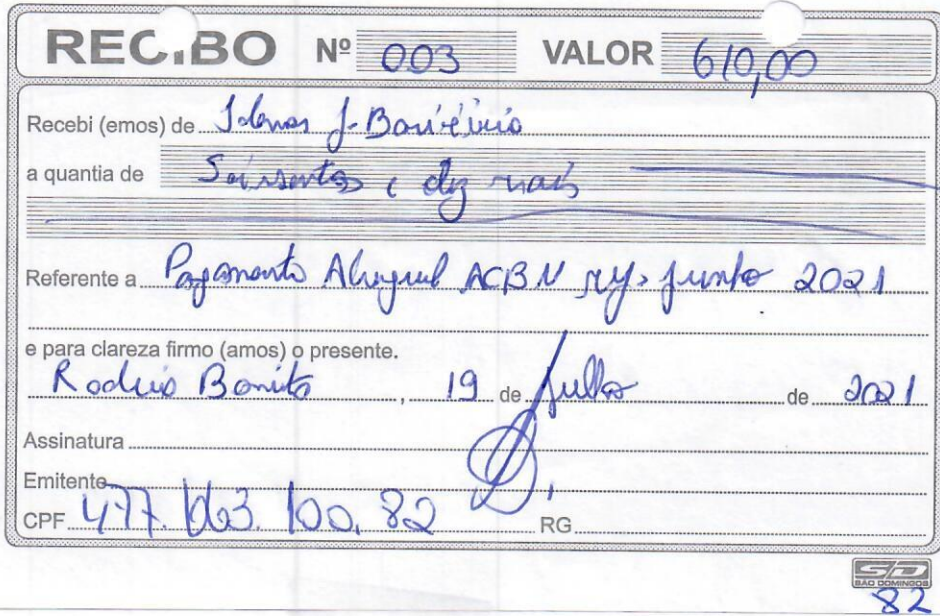 RECIBO Nº 003 VALOR 610,00
Recebi (emos) de J.
a quantia de Seissentos e dez reais
Referente a Pagamento Aluguel ACBN ref. junho 2021
e para clareza firmo (amos) o presente.
Rodeio Bonito, 19 de Julho de 2021
Assinatura
Emitente
CPF 477.063.100.82 RG
SD
SÃO DOMINGOS
82